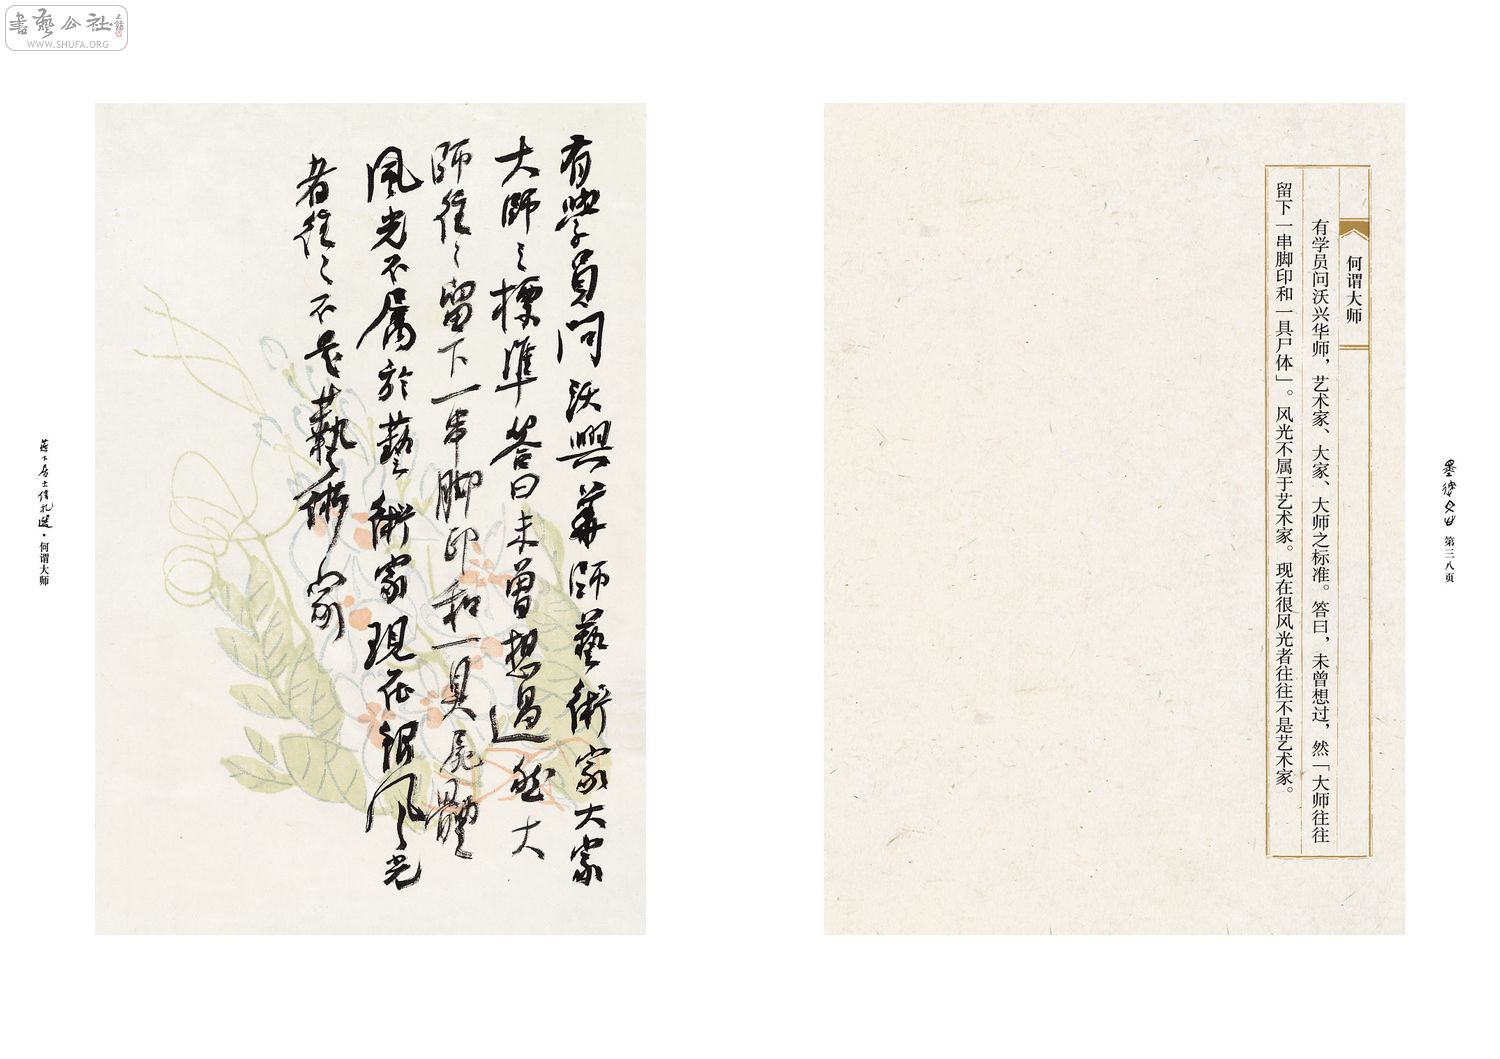 書藝公社
WWW.SHUFA.ORG
何谓大师
有学员问沃兴华师，艺术家、大家、大师之标准。答曰，未曾想过，然「大师往往
留下一串脚印和一具尸体」。风光不属于艺术家。现在很风光者往往不是艺术家。
第三八页
有學員问沃興華師藝術家大家
大師之標準答曰未曾想過然大
師往々留下一串脚印和一具屍體
風光不属於藝術家現在很风光
者往々不是藝術家
·何谓大师